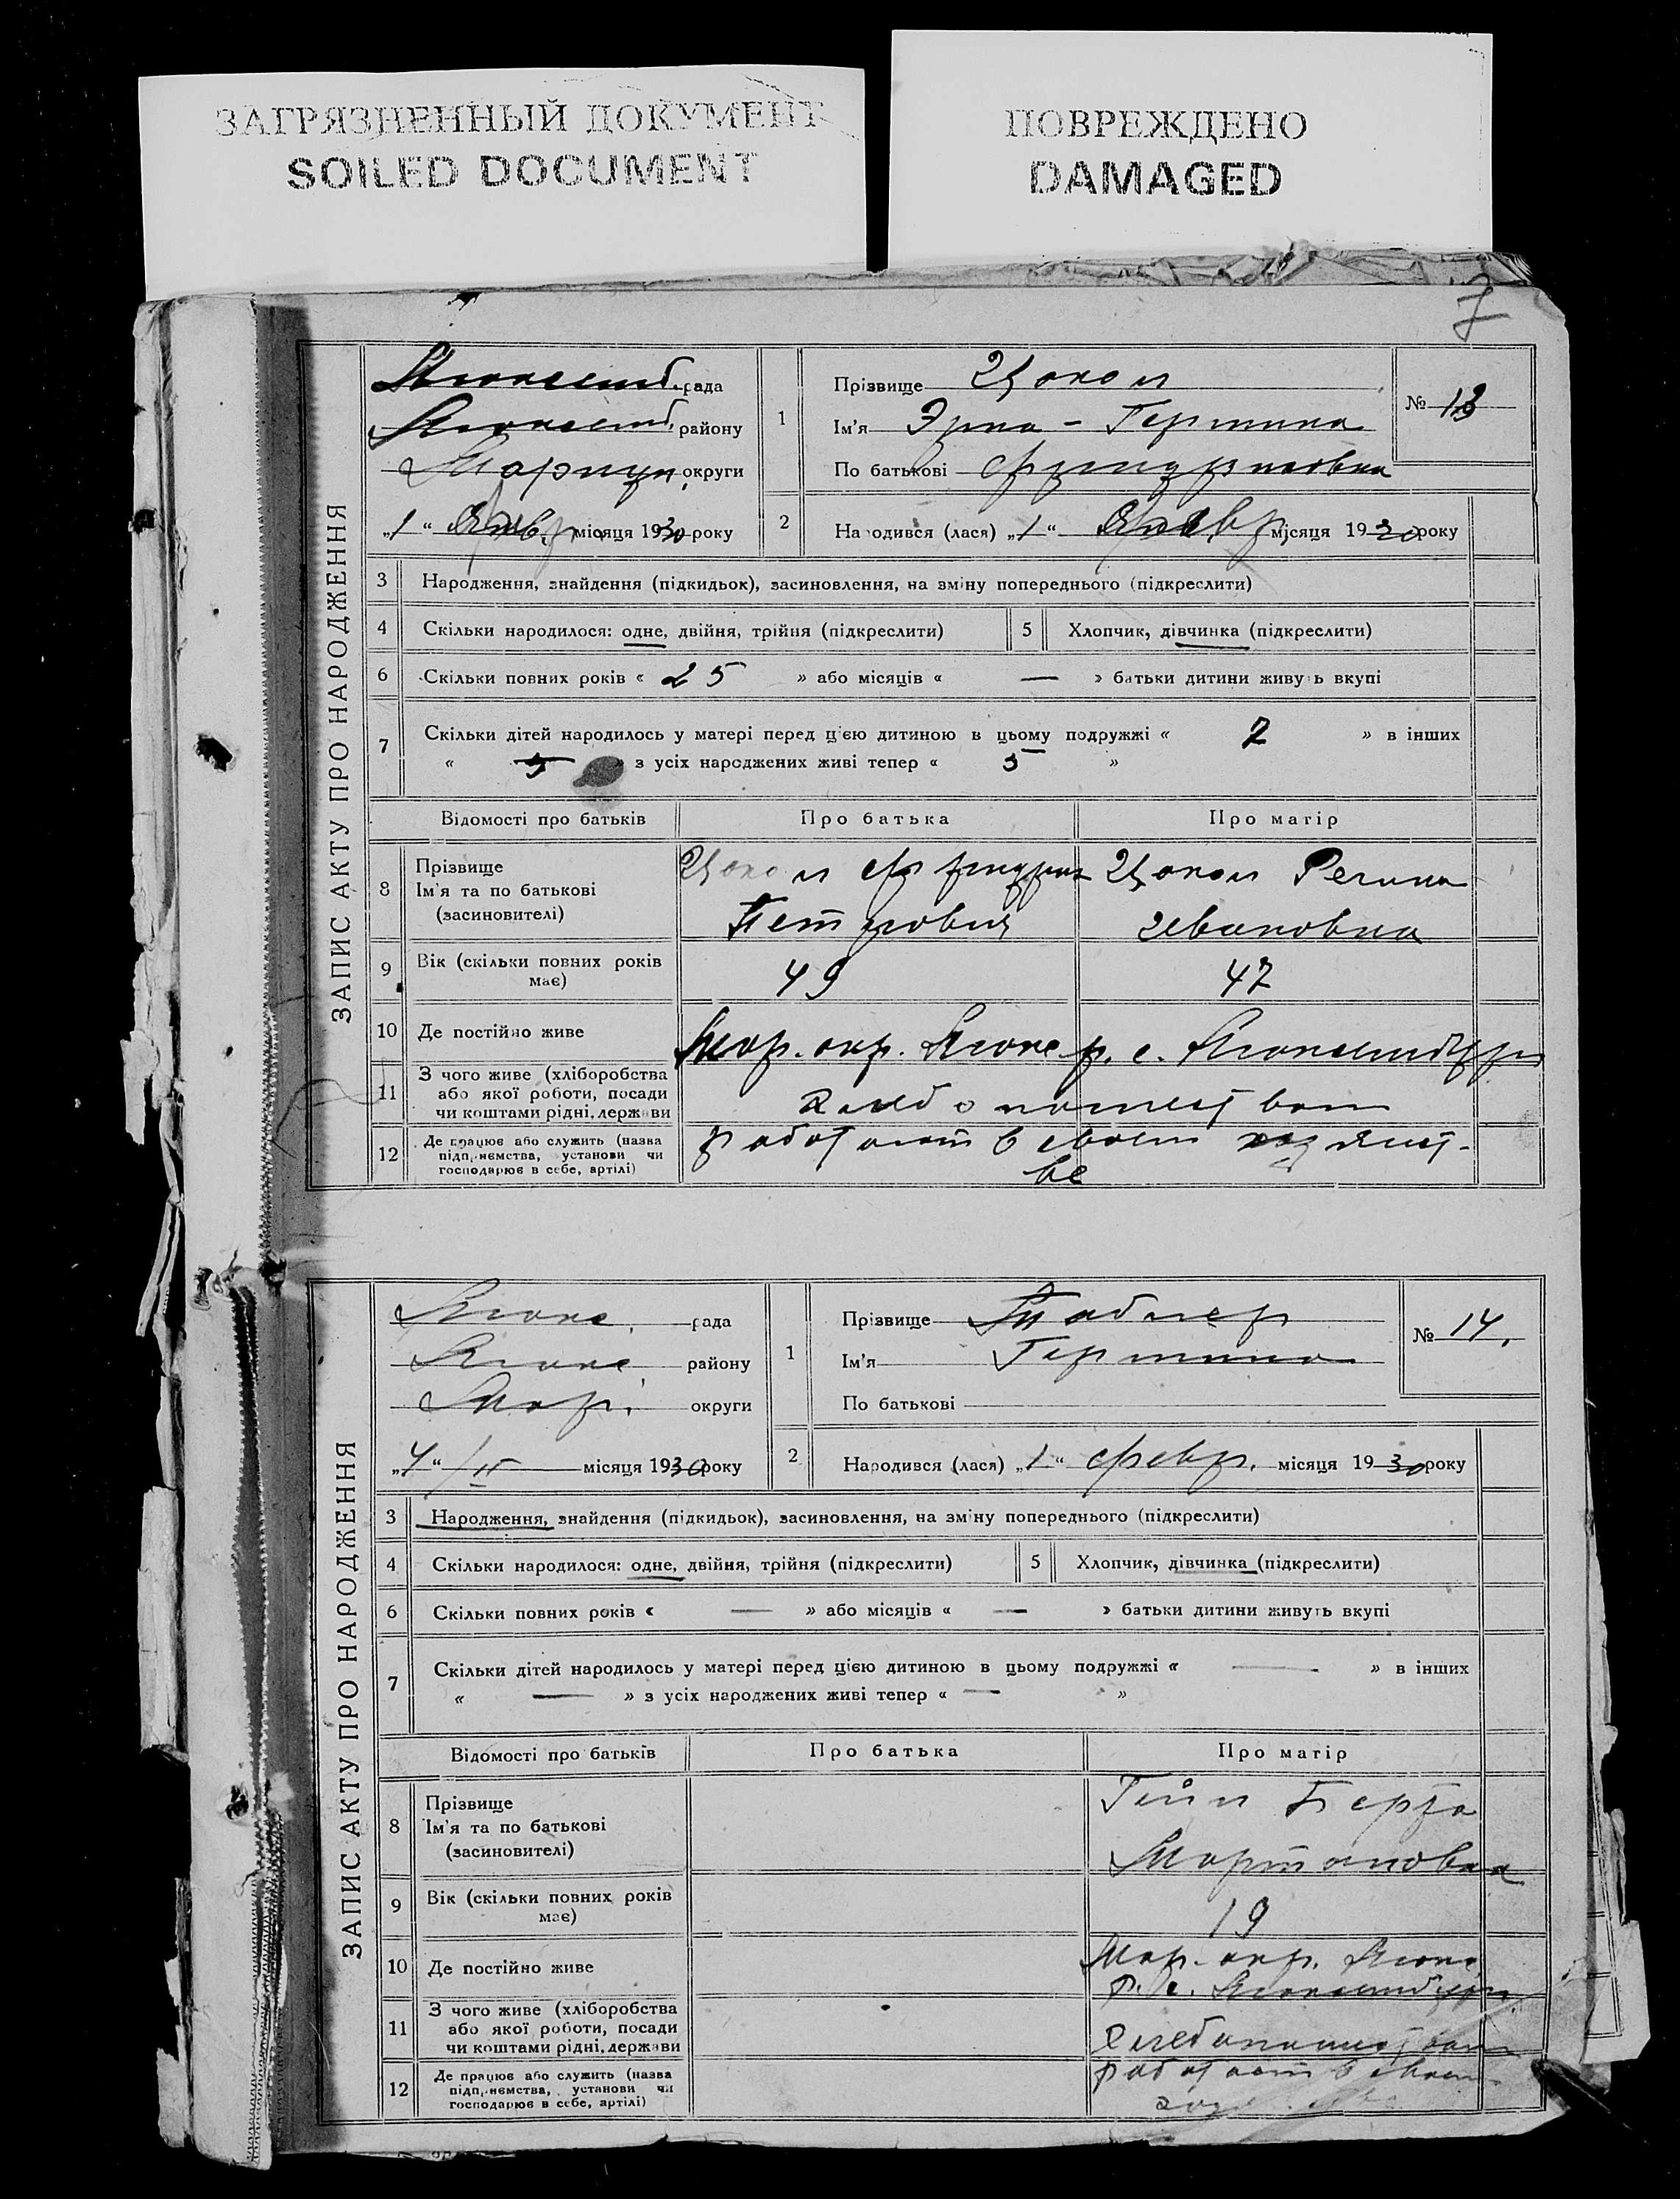 ЗАГРЯЗНЕННЫЙ ДОКУМЕНТ
SOILED DOCUMENT
ПОВРЕЖДЕНО
DAMAGED
7
ЗАПИС АКТУ ПРО НАРОДЖЕННЯ
рада
району
округи
„1“ місяця 1930 року
1
Прізвище Цоколл
Ім'я Эрна - Гермина
По батькові
№ 13
2
Народився (лася) „1“ місяця 1930 року
3 Народження, знайдення (підкидьок), засиновлення, на зміну попереднього (підкреслити)
4 Скільки народилося: одне, двійня, трійня (підкреслити)
5 Хлопчик, дівчинка (підкреслити)
6 Скільки повних років « 25 » або місяців « — » батьки дитини живуть вкупі
7 Скільки дітей народилось у матері перед цією дитиною в цьому подружжі « 7 » в інших
« » з усіх народжених живі тепер « 5 »
Відомості про батьків Про батька Про матір
8 Прізвище
Ім'я та по батькові
(засиновителі)
Петрович
Регина
Ивановна
9 Вік (скільки повних років
має)
49 47
10 Де постійно живе
Мар. окр. р. с.
11 З чого живе (хліборобства
або якої роботи, посади
чи коштами рідні, держави
хлебопашеством
12 Де працює або служить (назва
підприємства, установи чи
господарює в себе, артілі)
работают в своем хозяйст-
ве
ЗАПИС АКТУ ПРО НАРОДЖЕННЯ
рада
району
Мар. округи
„4“ /II місяця 1930 року
1
Прізвище
Ім'я Гермина
По батькові
№ 14.
2
Народився (лася) „1“ февр. місяця 1930 року
3 Народження, знайдення (підкидьок), засиновлення, на зміну попереднього (підкреслити)
4 Скільки народилося: одне, двійня, трійня (підкреслити)
5 Хлопчик, дівчинка (підкреслити)
6 Скільки повних років « — » або місяців « — » батьки дитини живуть вкупі
7 Скільки дітей народилось у матері перед цією дитиною в цьому подружжі « — » в інших
« — » з усіх народжених живі тепер « — »
Відомості про батьків Про батька Про матір
8 Прізвище
Ім'я та по батькові
(засиновителі)
Берта
Мартановна
9 Вік (скільки повних років
має)
19
10 Де постійно живе
Мар. окр.
р. с.
11 З чого живе (хліборобства
або якої роботи, посади
чи коштами рідні, держави
хлебопашеством
12 Де працює або служить (назва
підприємства, установи чи
господарює в себе, артілі)
работает в своем